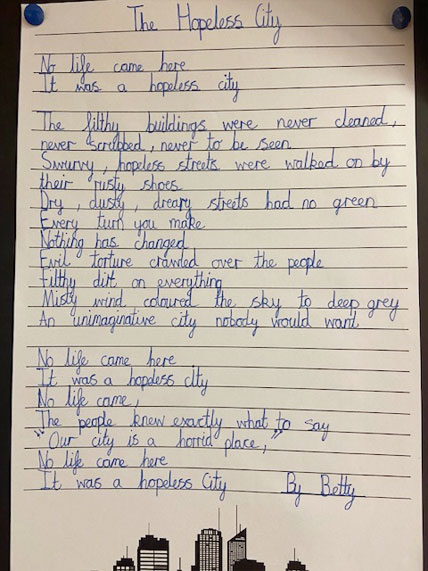 The Hopeless City
No life came here
It was a hopeless city
The filthy buildings were never cleaned,
never scrubbed, never to be seen
Swurvy, hopeless streets were walked on by
their rusty shoes
Dry, dusty, dreary streets had no green
Every turn you make
Nothing has changed
Evil torture crawled over the people
Filthy dirt on everything
Misty wind coloured the sky to deep grey
An unimaginative city nobody would want
No life came here
It was a hopeless city
No life came,
The people knew exactly what to say
"Our city is a horrid place,"
No life came here
It was a hopeless City By Betty